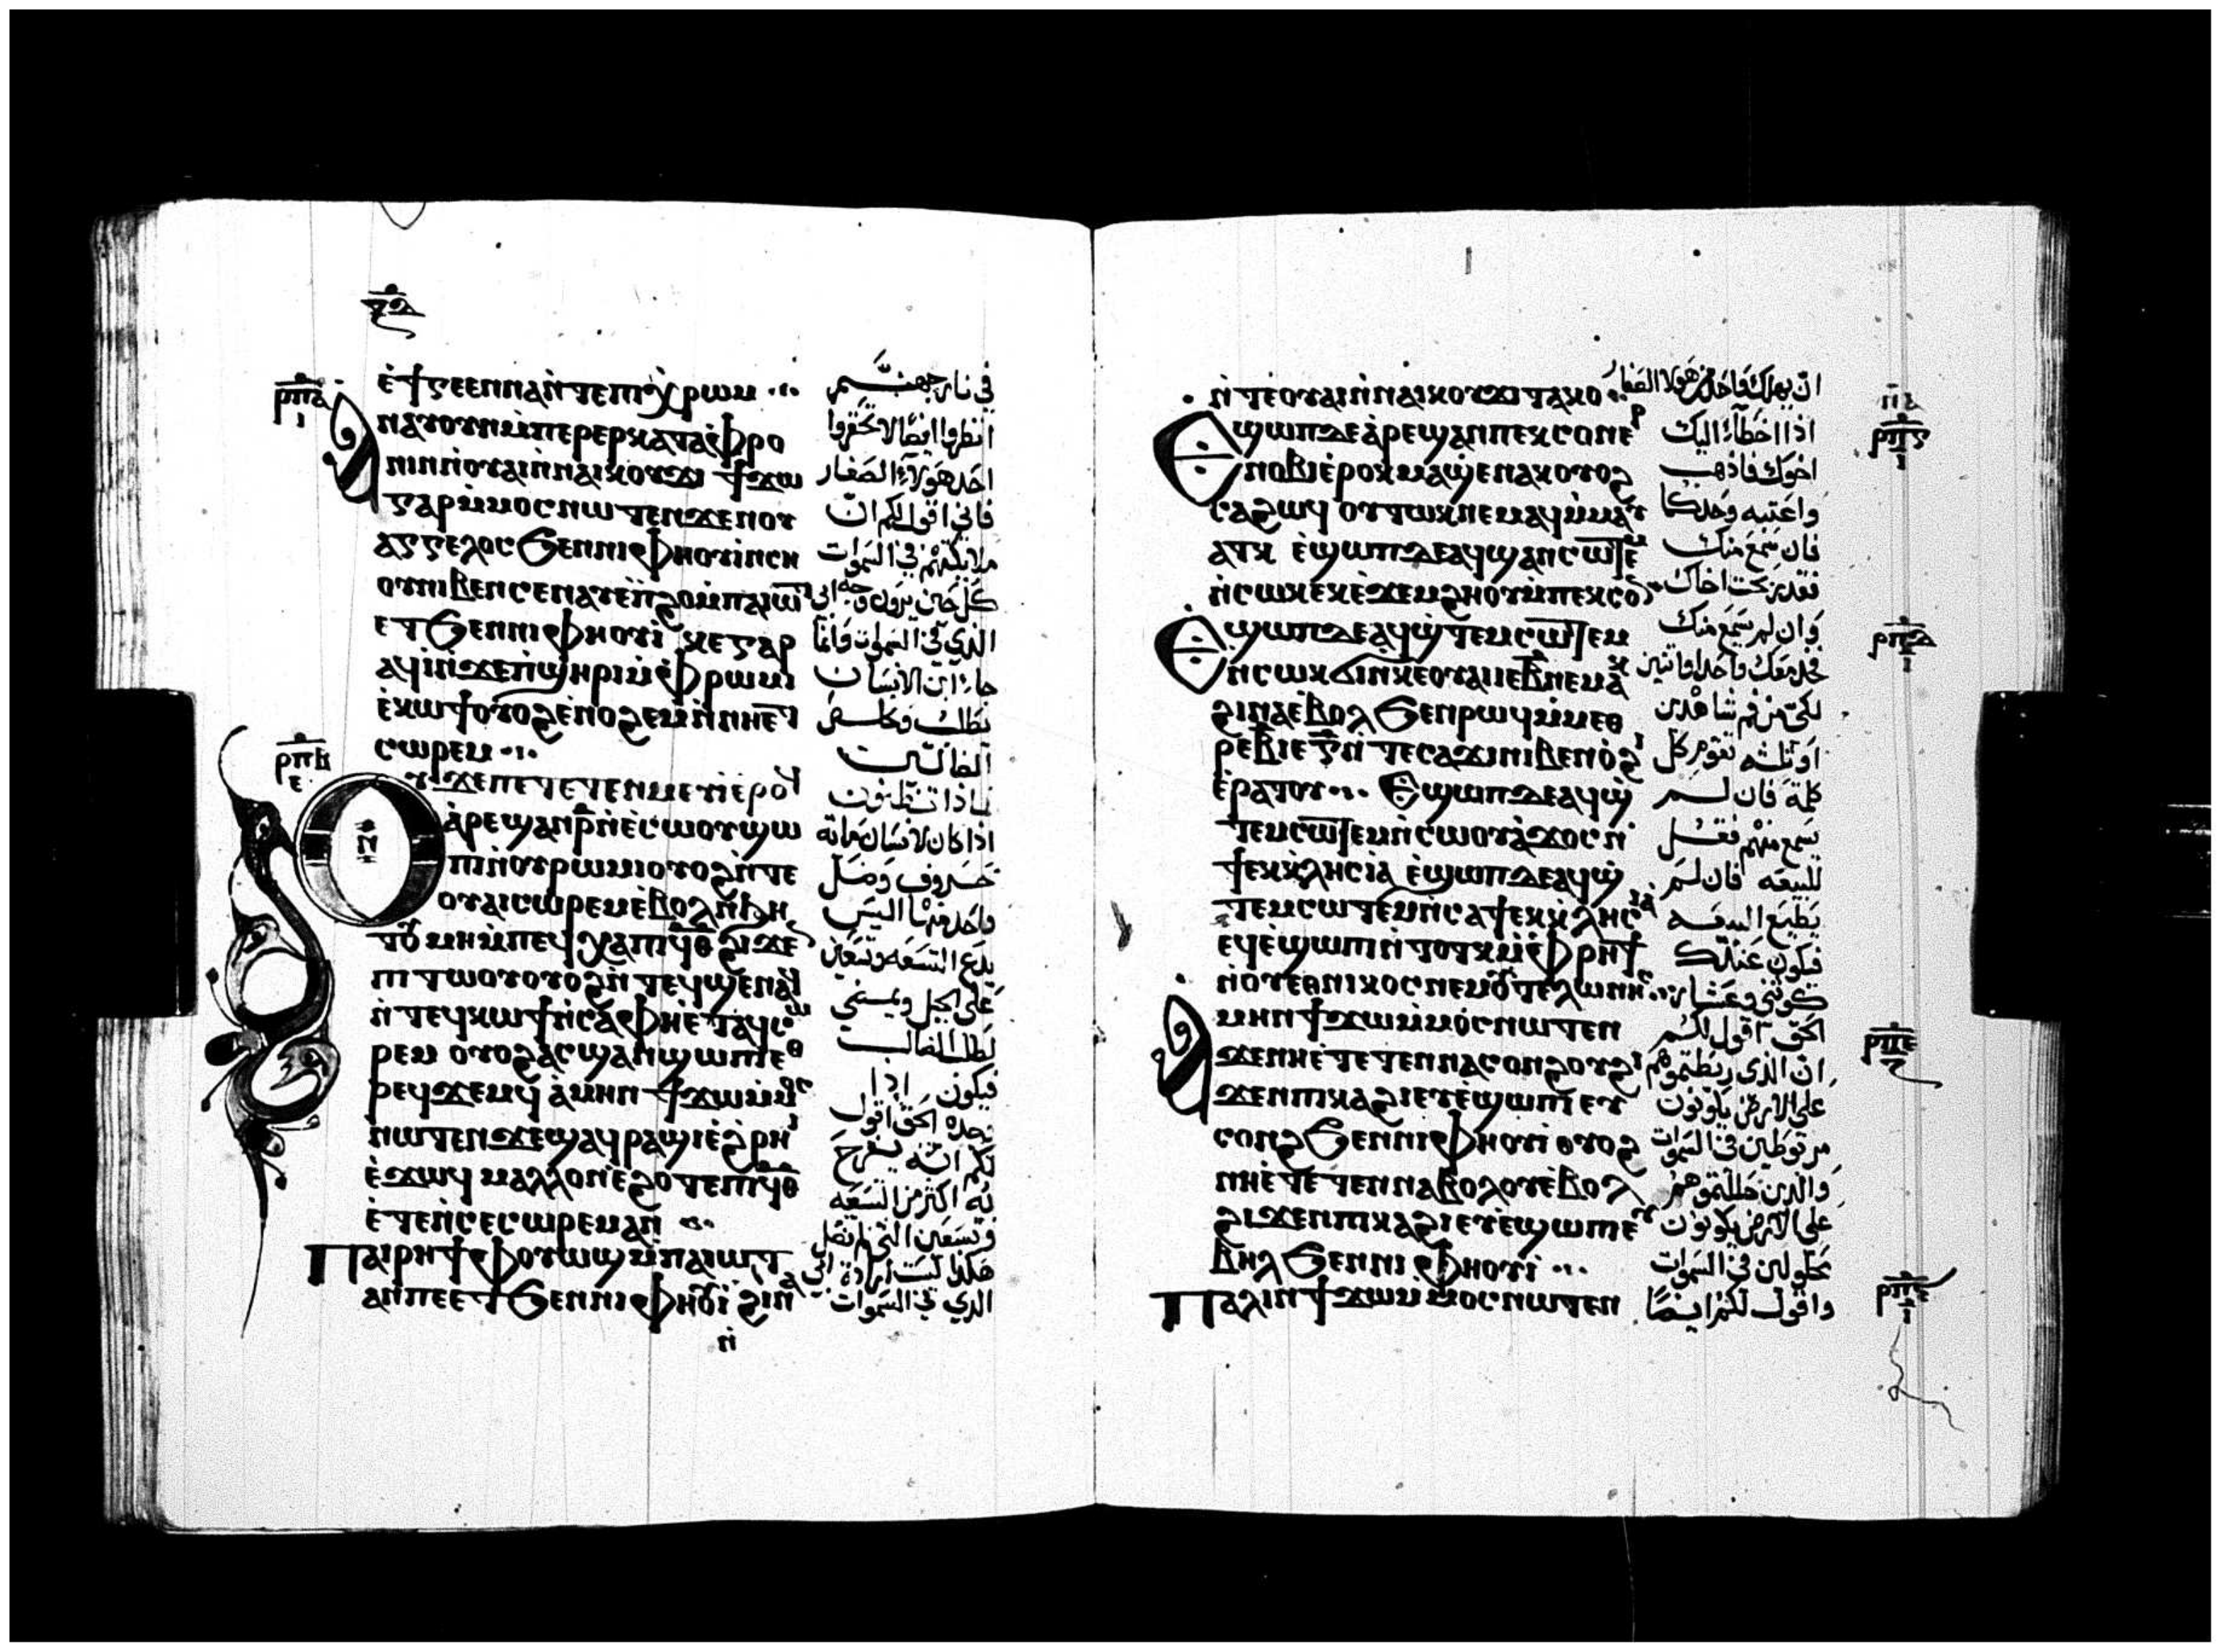 ϥⲑ
ⲣⲡⲁ
ⲓ
ⲉ̀ϯⲅⲉⲉⲛⲛⲁⲛ̀ⲧⲉⲡⲓⲭ̀ⲣⲱⲙ
ⲁⲛⲁⲩⲟⲩⲛⲙ̀ⲡⲉⲣⲉⲣⲕⲁⲧⲁⲫ̀ⲣⲟ
ⲛⲓⲛⲛ̀ⲟⲩⲁⲓⲛ̀ⲛⲁⲓⲕⲟⲩϫⲓ ϯϫⲱ
ⲅⲁⲣⲙ̀ⲙⲟⲥⲛⲱⲧⲉⲛϫⲉⲛⲟⲩ
ⲁⲅⲅⲉⲗⲟⲥϧⲉⲛⲛⲓⲫⲏⲟⲩⲓ̀ⲛⲥⲏ
ⲟⲩⲛⲓⲃⲉⲛⲥⲉⲛⲁⲩⲉ̀ⲡϩⲟⲙ̀ⲡⲁⲓⲱⲧ
ⲉⲧϧⲉⲛⲛⲓⲫⲏⲟⲩⲓ̀ ⲕⲉⲅⲁⲣ
ⲁϥⲓ̀ⲛ̀ϫⲉⲡ̀ϣⲏⲣⲓⲙ̀ⲫ̀ⲣⲱⲙⲓ
ⲉ̀ⲕⲱϯⲟⲩⲟϩⲉ̀ⲛⲟϩⲉⲙⲛ̀ⲛⲏⲉⲧ
ⲥⲱⲣⲉⲙ
ⲣⲡⲃ
ⲉ
ⲛ
ⲟⲩϫⲉⲡⲉⲧⲉⲧⲉⲛⲙⲉⲩⲓ̀ⲉ̀ⲣⲟϥ
ⲁ̀ⲣⲉϣⲁⲛⲣ̄ⲛ̀ⲉ̀ⲥⲱⲟⲩϣⲱ
ⲡⲓⲛ̀ⲟⲩⲣⲱⲙⲓⲟⲩⲟϩⲛ̀ⲧⲉ
ⲟⲩⲁⲓⲥⲱⲣⲉⲙⲉ̀ⲃⲟⲗⲛ̀ϧⲏ
ⲧⲟⲩ ⲙⲏⲙ̀ⲡⲉϥⲭⲁⲡⲓϥⲑ ϩⲓϫⲉⲛ
ⲡⲓⲧⲱⲟⲩⲟⲩⲟϩⲛ̀ⲧⲉϥϣⲉⲛⲁϥ
ⲛ̀ⲧⲉϥⲕⲱϯⲛ̀ⲥⲁⲫⲏⲉ̀ⲧⲁϥⲥⲱ
ⲣⲉⲙ ⲟⲩⲟϩⲁⲥϣⲁⲛϣⲱⲡⲓⲉⲑ
ⲣⲉϥϫⲉⲙϥ ⲁ̀ⲙⲏⲛ ϯϫⲱⲙ̀ⲙⲟⲥ
ⲛⲱⲧⲉⲛϫⲉϣⲁϥⲣⲁϣⲓⲉ̀ϩ̀ⲣⲏⲓ
ⲉ̀ϫⲱϥ ⲙⲁⲗⲗⲟⲛⲉ̀ϩⲟⲧⲉⲡⲓϥⲑ
ⲉ̀ⲧⲉⲛ̀ⲥⲉⲥⲱⲣⲉⲙⲁⲛ
ⲡⲁⲓⲣⲏϯⲫⲟⲩⲱϣⲙ̀ⲡⲁⲓⲱⲧ
ⲁⲛⲡⲉⲉⲧϧⲉⲛⲛⲓⲫⲏⲟⲩⲓ̀ ϩⲓⲛⲁ
ⲛ̀
في نار جهنم
انظروا ايضا لا تحقروا
احد هولاء الصغار
فاني اقول لكم ان
ملايكتهم في السموات
كل حين يرون وجه ابي
الذي في السموات وانما
جاء ابن الانسان
يطلب ويخلص
الضالين
ماذا تظنون
اذا كان لانسان مائه
خروف وضل
واحد منها اليس
يدع التسعه وتسعين
على الجبل ويمضي
يطلب الضالب
فيكون اذا
وجده الحق اقول
لكم انه يفرح
به اكثر من التسعه
وتسعين التي لم تضل
هكذا ليست ارادة ابي
الذي في السموات
ⲛ̀ⲧⲉⲟⲩⲁⲓⲛ̀ⲛⲁⲓⲕⲟⲩϫⲓ ⲧⲁⲕⲟ
ⲉϣⲱⲡ ⲇⲉⲁ̀ⲣⲉϣⲁⲛⲡⲉⲕⲥⲟⲛⲉⲣ
ⲛⲟⲃⲓⲉ̀ⲣⲟⲕⲙⲁϣⲉⲛⲁⲕⲟⲩⲟϩ
ⲥⲁϩⲱϥ ⲟⲩⲧⲱⲕⲛⲉⲙⲁϥⲙ̀ⲙⲁⲩ
ⲁⲧⲕ ⲉ̀ϣⲱⲡ ⲇⲉⲁϥϣⲁⲛⲥⲱⲧⲉⲙ
ⲛ̀ⲥⲱⲕⲉⲕⲉ̀ϫⲉⲙϩⲏⲟⲩⲙ̀ⲡⲉⲕⲥⲟⲛ
ⲉϣⲱⲡ ⲇⲉⲁϥϣ̀ⲧⲉⲙⲥⲱⲧⲉⲙ
ⲛ̀ⲥⲱⲕ ϭⲓⲛ̀ⲕⲉⲟⲩⲁⲓⲓⲉⲃⲛⲉⲙⲁⲕ
ϩⲓⲛⲁⲉ̀ⲃⲟⲗϧⲉⲛⲣⲱϥⲙ̀ⲙⲉⲑ
ⲣⲉⲃⲓⲉⲅⲛ̀ⲧⲉⲥⲁϫⲓⲛⲓⲃⲉⲛⲟ̀ϩⲓ
ⲉ̀ⲣⲁⲧⲟⲩ ⲉϣⲱⲡ ⲇⲉⲁϥϣ̀
ⲧⲉⲙⲥⲱⲧⲉⲙⲛ̀ⲥⲱⲟⲩⲁ̀ϫⲟⲥⲛ̀
ϯⲉⲕⲕⲗⲏⲥⲓⲁ ⲉ̀ϣⲱⲡ ⲇⲉⲁϥϣ̀
ⲧⲉⲙⲥⲱⲧⲉⲙⲛ̀ⲥⲁϯⲉⲕⲕⲗⲏⲥⲓⲁ
ⲉϥⲉ̀ϣⲱⲡⲓⲛ̀ⲧⲟⲧⲕⲙ̀ⲫⲣⲏϯ
ⲛ̀ⲟⲩⲉⲑⲛⲓⲕⲟⲥⲛⲉⲙⲟⲩⲧⲉⲗⲱⲛⲏⲥ
ⲁⲙⲏⲛ ϯϫⲱⲙ̀ⲙⲟⲥⲛⲱⲧⲉⲛ
ϫⲉⲛⲏⲉ̀ⲧⲉⲧⲉⲛⲛⲁⲥⲟⲛϩⲟⲩϩⲓ
ϫⲉⲛⲡⲓⲕⲁϩⲓⲉⲩⲉ̀ϣⲱⲡⲓⲉⲩ
ⲥⲟⲛϩϧⲉⲛⲛⲓⲫⲏⲟⲩⲓ̀ ⲟⲩⲟϩ
ⲛⲏⲉ̀ⲧⲉⲧⲉⲛⲛⲁⲃⲟⲗⲟⲩⲉ̀ⲃⲟⲗ
ϩⲓϫⲉⲛⲡⲓⲕⲁϩⲓⲉⲩⲉ̀ϣⲱⲡⲓⲉⲩ
ⲃⲏⲗϧⲉⲛⲛⲓⲫⲏⲟⲩⲓ̀
ⲡⲁⲗⲓⲛϯϫⲱⲙ̀ⲙⲟⲥⲛⲱⲧⲉⲛ
ان يهلك واحد من هولا الصغار
اذا اخطأ اليك
اخوك فاذهب
واعتبه وحدكما
فان سمع منك
فقد ربحت اخاك
وان لم يسمع منك
فخذ معك واحد او اثنين
لكي من فم شاهدين
او ثلثه تقوم كل
كلمة فان لم
يسمع منهم فقل
للبيعه فان لم
يطيع البيعه
فيكون عندك
كوثني وعشار
الحق اقول لكم
ان الذي ربطتموهم
على الارض يكونون
مربوطين في السموات
والذين حللتموهم
على الارض يكونون
محلولين في السموات
واقول لكم ايضا
ⲣⲡⲅ
ⲣⲡⲇ
ⲣⲡⲉ
ⲣⲡⲋ